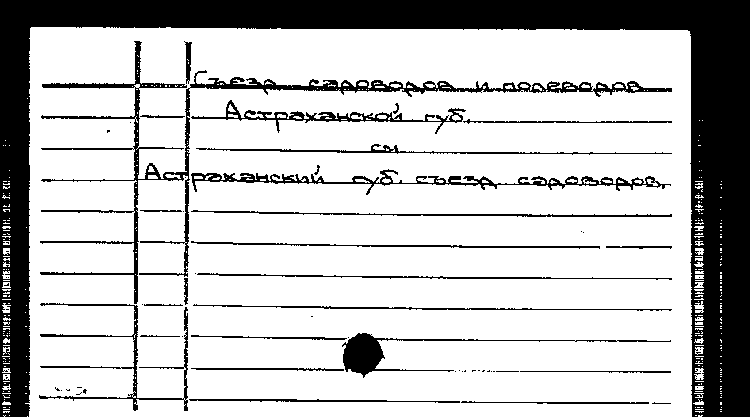 Съезд садоводов и полеводов
Астраханской губ.
см
Астраханский губ. съезд садоводов.